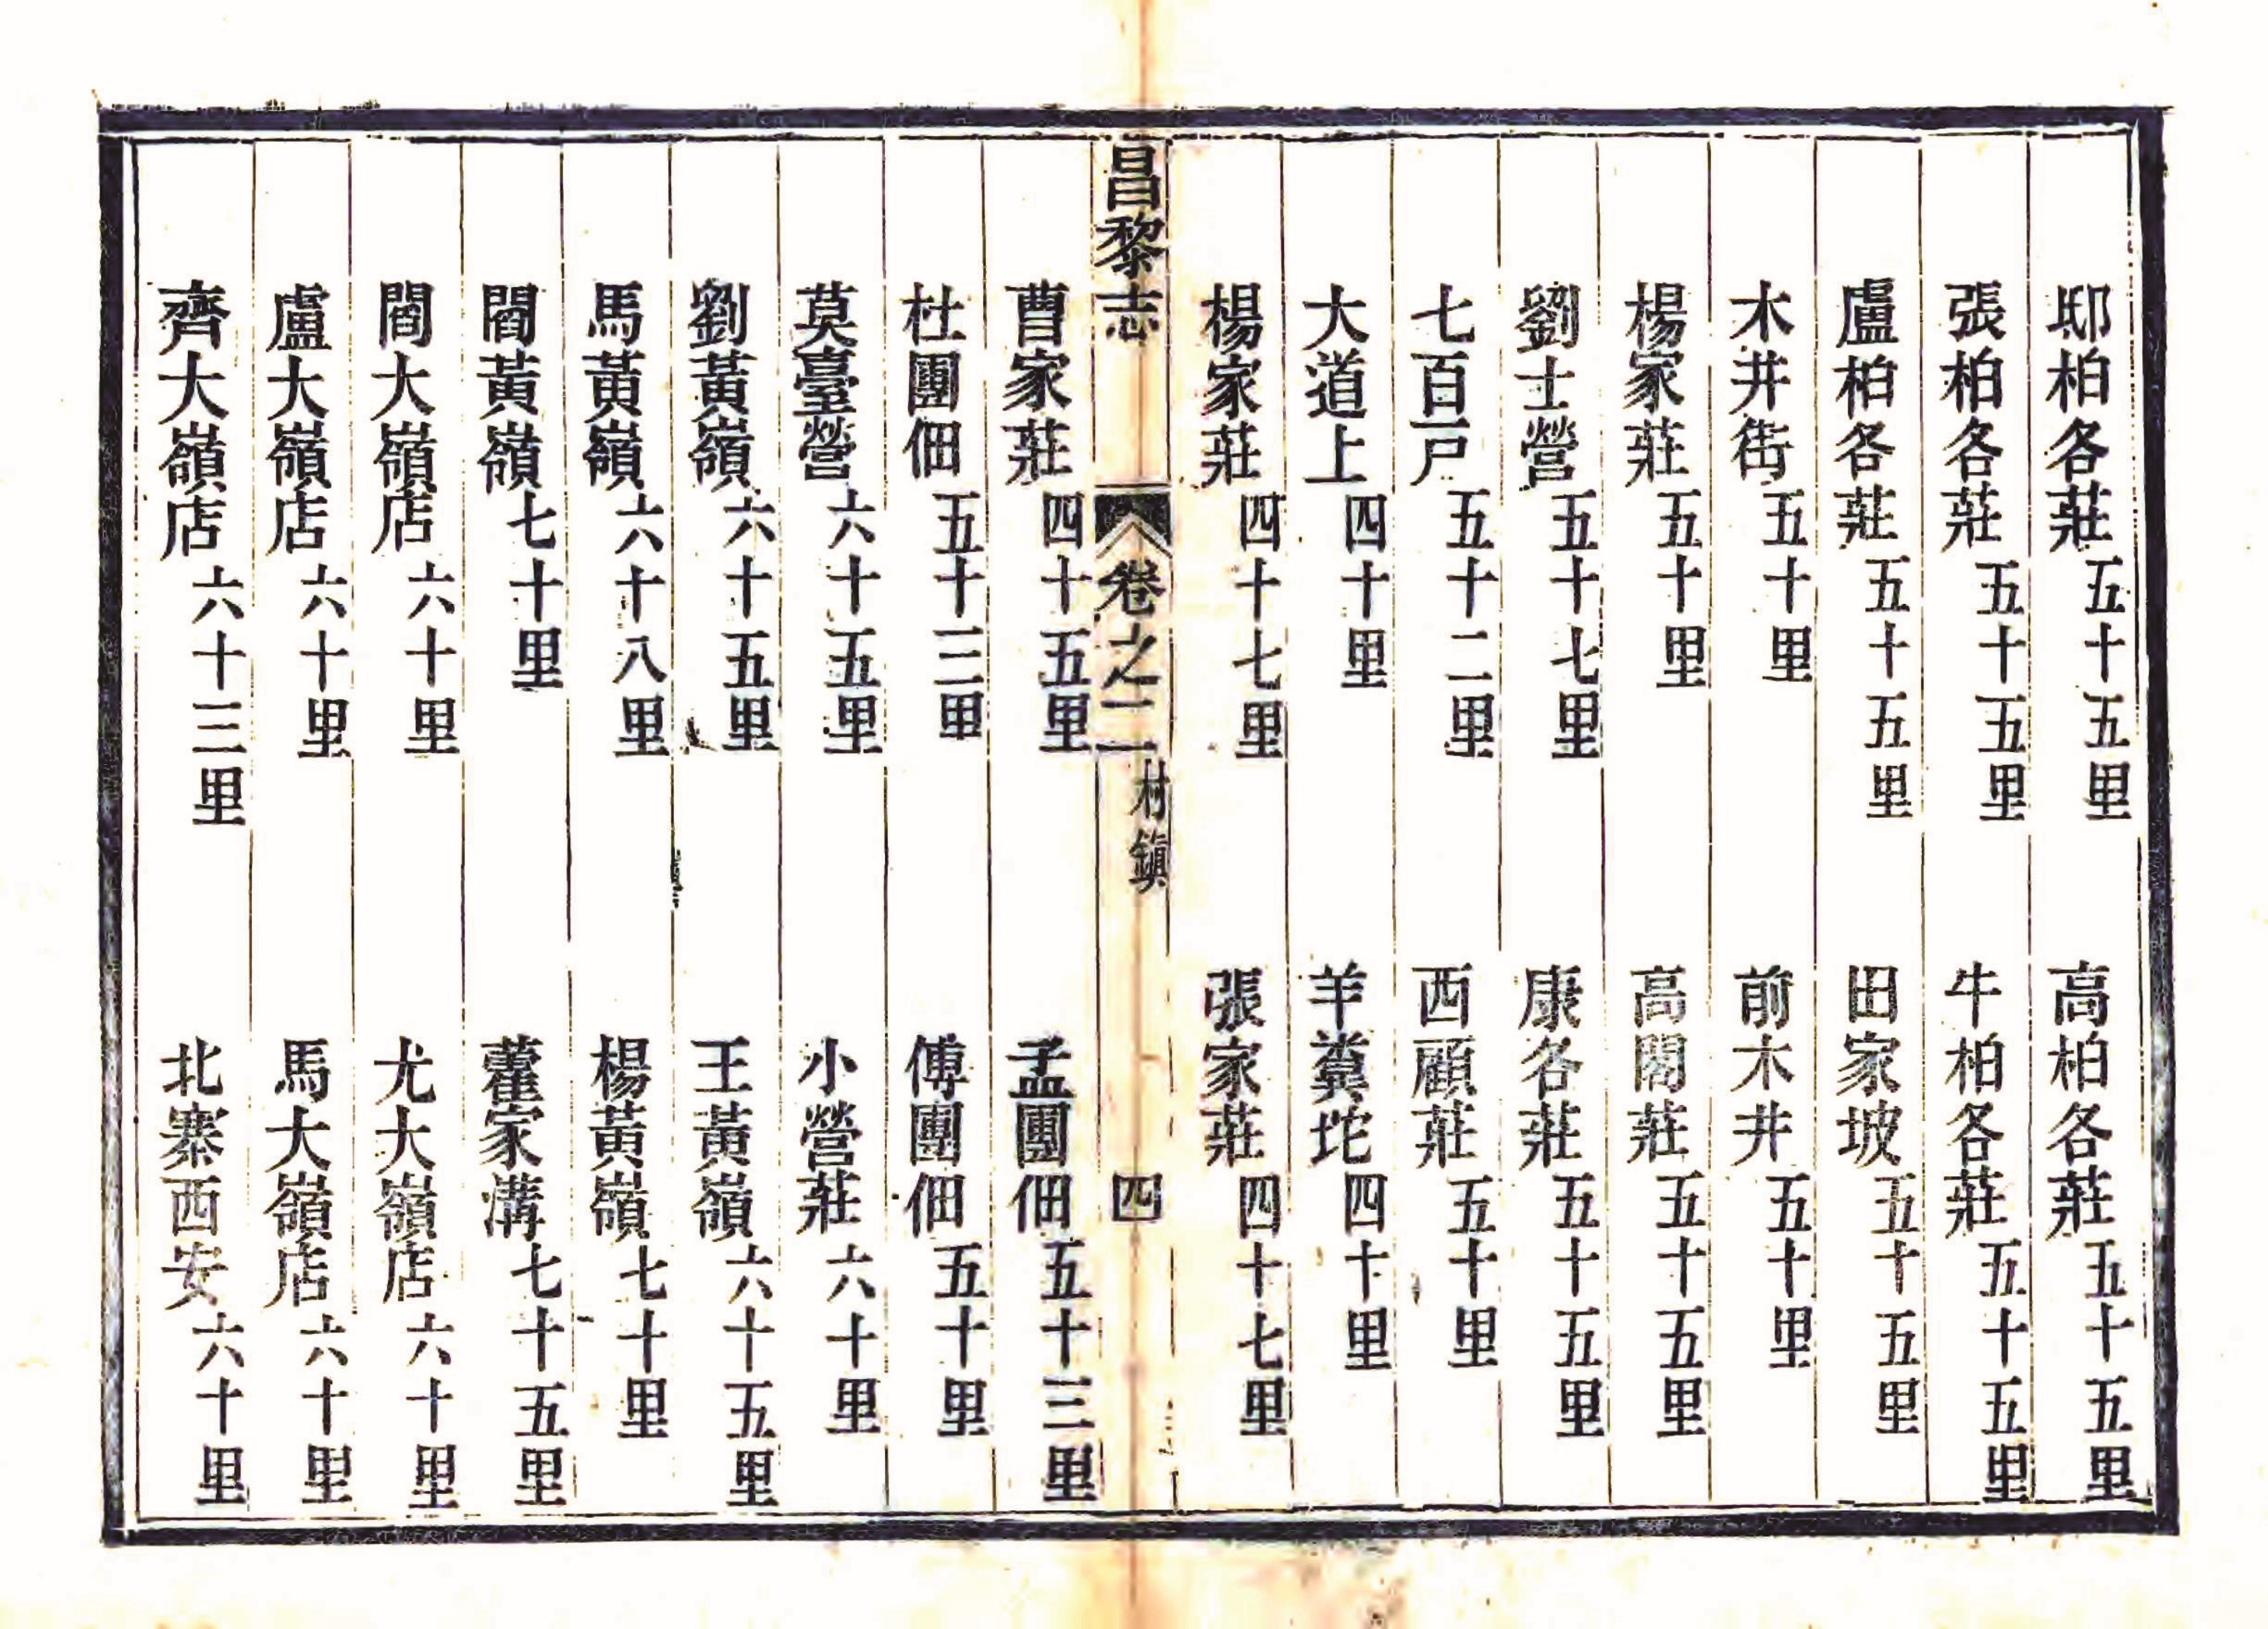 邸柏各莊五十五里　高柏各莊五十五里
張柏各莊五十五里　牛柏各莊五十五里
盧柏各莊五十五里　田家坡五十五里
木井街五十里　前木井五十里
楊家莊五十里　高閣莊五十五里
劉士營五十七里　康各莊五十五里
七百戸五十二里　西顧莊五十里
大道上四十里　羊糞坨四十里
楊家莊四十七里　張家莊四十七里
昌黎志　卷之二　村鎮　四
曹家莊四十五里　孟團佃五十三里
杜團佃五十三里　傅團佃五十里
莫臺營六十五里　小營莊六十里
劉黃嶺六十五里　王黃嶺六十五里
馬黃嶺六十八里　楊黃嶺七十里
閻黃嶺七十里　藿家溝七十五里
閻大嶺店六十里　尤大嶺店六十里
盧大嶺店六十里　馬大嶺店六十里
齊大嶺店六十三里　北寨西安六十里